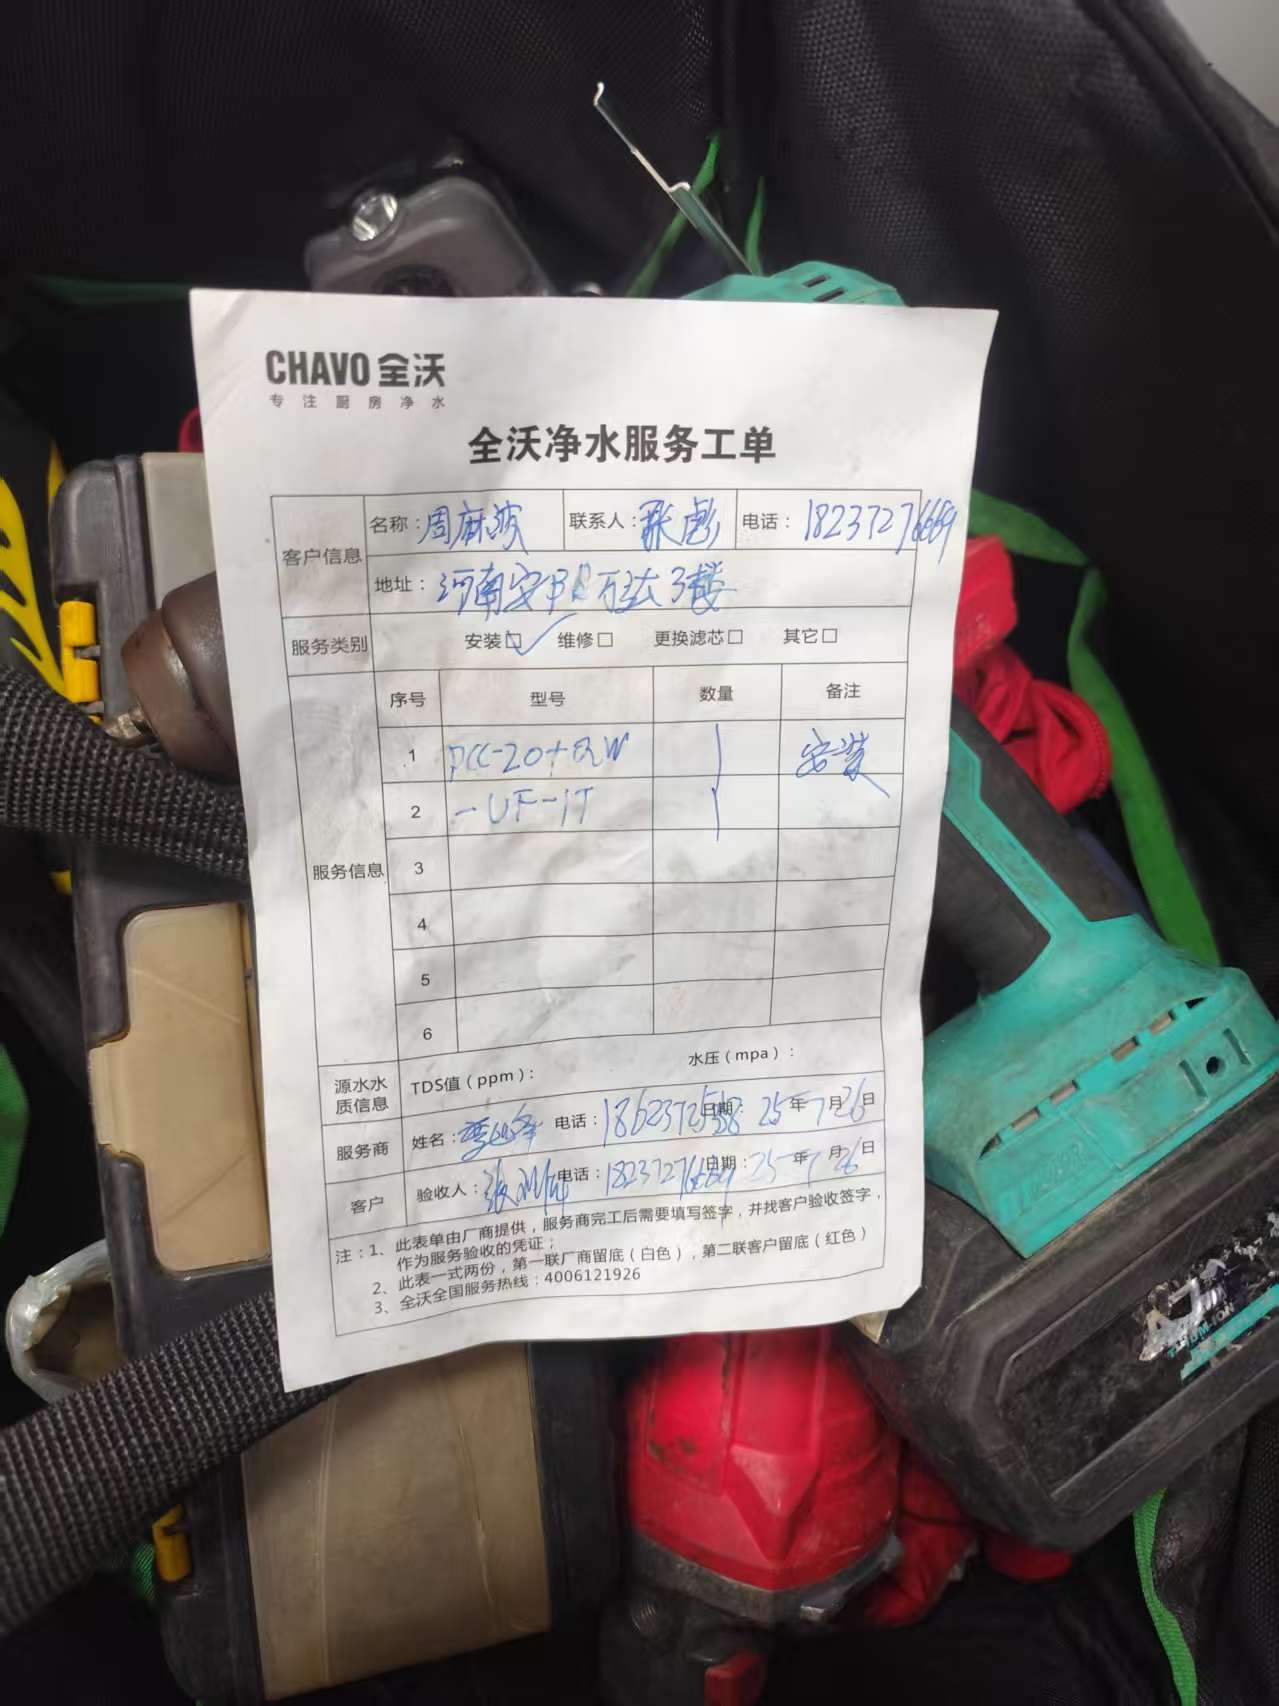 CHAVO 全沃
专注厨房净水
全沃净水服务工单
客户信息 名称：周麻婆 联系人：张彪 电话：18237276669
地址：河南安阳万达3楼
服务类别 安装☑ 维修□ 更换滤芯□ 其它□
服务信息 序号 型号 数量 备注
1 PCC-20+ 1 安装
2 -UF-1T 1
3
4
5
6
源水水质信息 TDS值（ppm）： 水压（mpa）：
服务商 姓名： 电话： 日期：25年7月26日
客户 验收人： 电话：18237276669 日期：25年7月26日
注：1、此表单由厂商提供，服务商完工后需要填写签字，并找客户验收签字，
作为服务验收的凭证；
2、此表一式两份，第一联厂商留底（白色），第二联客户留底（红色）
3、全沃全国服务热线：4006121926